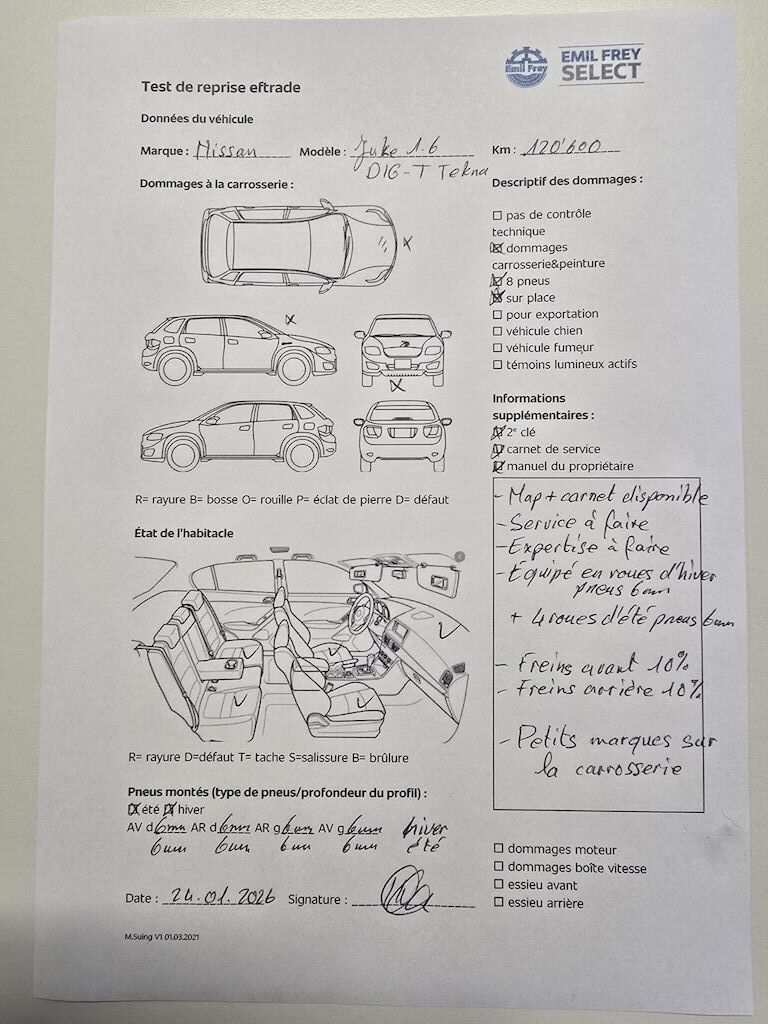 Emil Frey
EMIL FREY
SELECT
Test de reprise eftrade
Données du véhicule
Marque : Nissan Modèle : Juke 1.6 Km : 120'600
DIG-T Tekna
Dommages à la carrosserie :
Descriptif des dommages :
☐ pas de contrôle
technique
☒ dommages
carrosserie&peinture
☒ 8 pneus
☒ sur place
☐ pour exportation
☐ véhicule chien
☐ véhicule fumeur
☐ témoins lumineux actifs
Informations
supplémentaires :
☒ 2e clé
☒ carnet de service
☒ manuel du propriétaire
R= rayure B= bosse O= rouille P= éclat de pierre D= défaut
- Map + carnet disponible
- Service à faire
- Expertise à faire
- Équipé en roues d'hiver
pneus 6mm
+ 4 roues d'été pneus 6mm
- Freins avant 10%
- Freins arrière 10%
- Petits marques sur
la carrosserie
État de l'habitacle
R= rayure D=défaut T= tache S=salissure B= brûlure
Pneus montés (type de pneus/profondeur du profil) :
☒ été ☒ hiver
AV d 6mm AR d 6mm AR g 6mm AV g 6mm hiver
6mm 6mm 6mm 6mm été
☐ dommages moteur
☐ dommages boîte vitesse
☐ essieu avant
☐ essieu arrière
Date : 24.01.2026 Signature :
M.Suing V1 01.03.2021